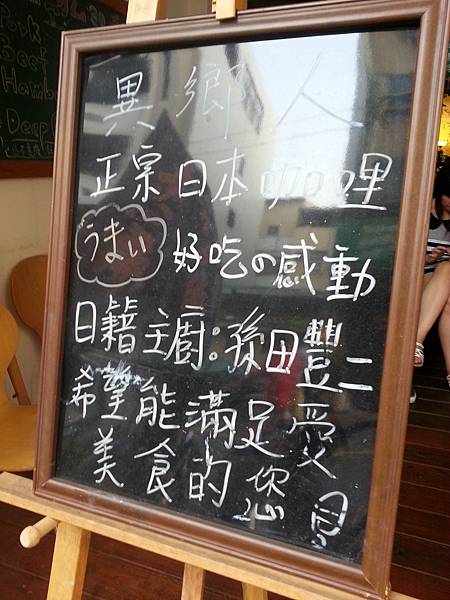 異鄉人
正宗日本咖哩
うまい 好吃の感動
日籍主廚:孫田豐二
希望能滿足愛
美食的您
Pork
Beef
Hamb
Deep